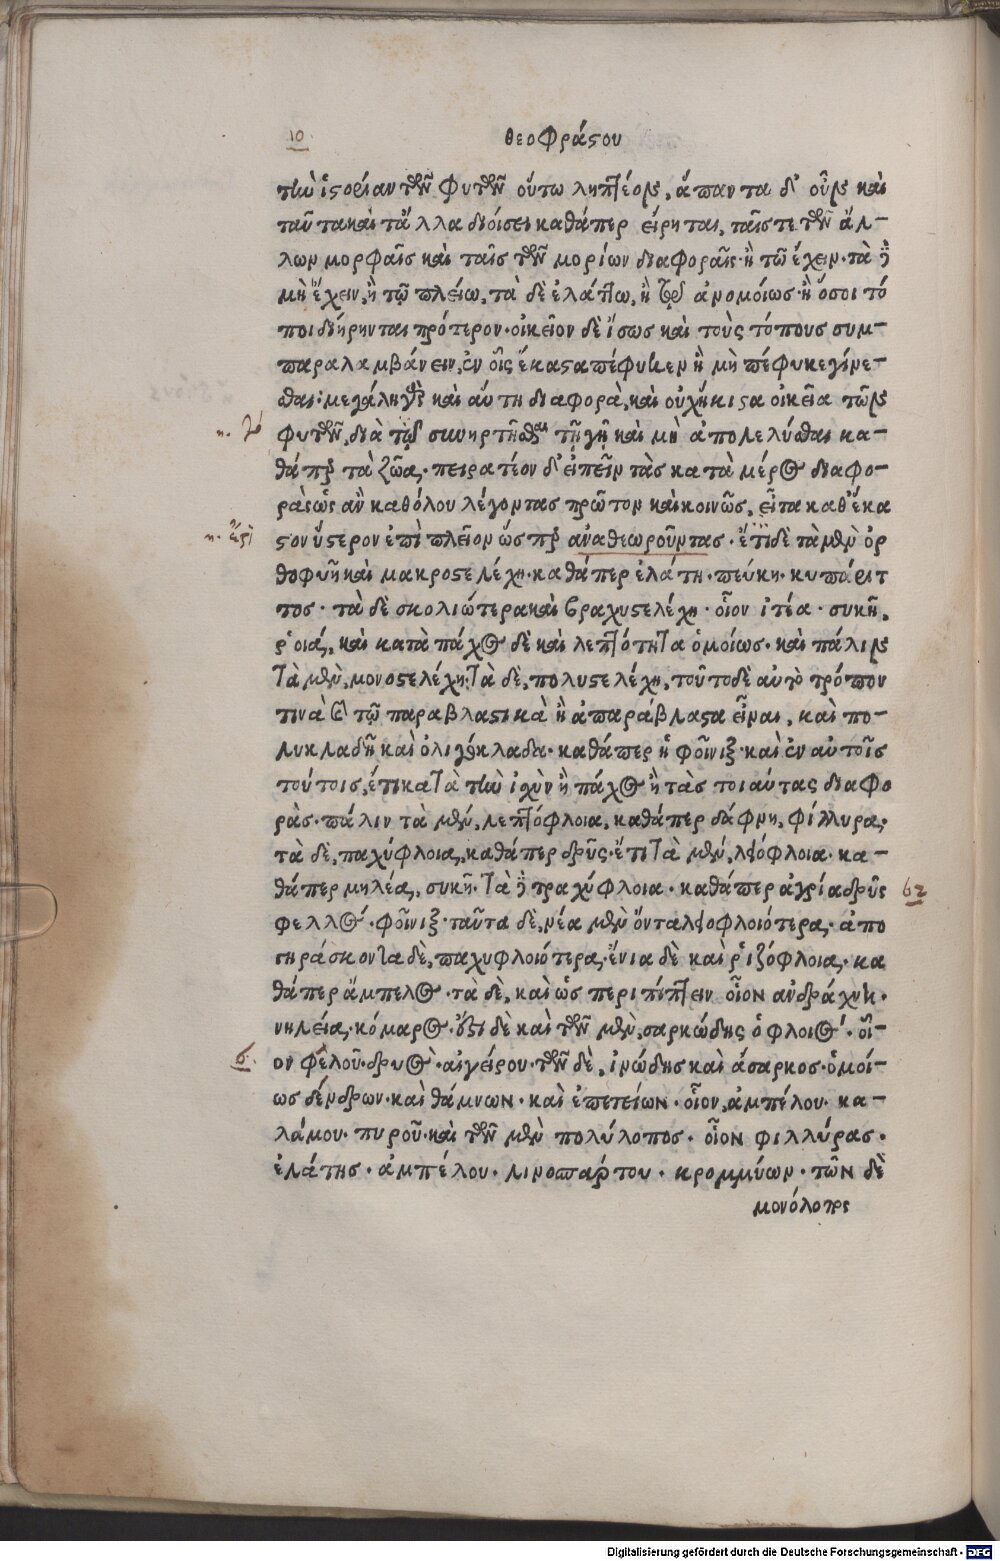 10
θεοφράστου
τὴν ἱστορίαν τῶν φυτῶν οὕτω ληπτέον, ἅπαντα δ' οὖν καὶ
ταῦτα καὶ τἄλλα διοίσει καθάπερ εἴρηται, ταῖς τε τῶν ὅλ-
λων μορφαῖς καὶ ταῖς τῶν μορίων διαφοραῖς· ἢ τῶ ἔχειν· τὰ δὲ
μὴ ἔχειν, ἢ τῷ πλείω, τὰ δὲ ἐλάττω, ἢ τῷ ἀνομοίως· ἢ ὅσοι τό
ποι διήρηνται πρότερον· οἰκεῖον δὲ ἴσως καὶ τοὺς τόπους συμ-
παραλαμβάνειν, ἐν οἷς ἕκαστα πέφυκεν ἢ μὴ πέφυκε γίνε-
σθαι· μεγάλη γὰρ καὶ αὕτη διαφορὰ, καὶ οὐχ ἥκιστα οἰκεῖα τῶν
φυτῶν, διὰ τὸ συνηρτῆσθαι τῇ γῇ καὶ μὴ ἀπολελύσθαι κα-
θάπερ τὰ ζῶα· πειρατέον δ' εἰπεῖν τὰς κατὰ μέρος διαφο-
ρὰς ὡς ἂν καθόλου λέγοντας πρῶτον καὶ κοινῶς, εἶτα καθ' ἕκα
στον ὕστερον ἐπὶ πλεῖον ὥσπερ ἀναθεωροῦντας· ἔτι δὲ τὰ μὲν ὀρ
θοφυῆ καὶ μακροστελέχη· καθάπερ ἐλάτη· πεύκη· κυπάριτ
τος· τὰ δὲ σκολιώτερα καὶ βραχυστελέχη· οἷον ἰτέα· συκῆ,
ῥοιά, καὶ κατὰ πάχος δὲ καὶ λεπτότητα ὁμοίως· καὶ πάλιν
τὰ μὲν, μονοστελέχη· τὰ δὲ, πολυστελέχη, τοῦτο δὲ αὐτὸ τρόπον
τινὰ καὶ τῷ παραβλαστικὰ ἢ ἀπαράβλαστα εἶναι, καὶ πο-
λυκλαδῆ καὶ ὀλιγόκλαδα· καθάπερ ἡ φοῖνιξ· καὶ ἐν αὐτοῖς
τούτοις, ἔτι κατὰ τὴν ἰχὺν ἢ πάχος ἢ τὰς τοιαύτας διαφο
ρὰς· πάλιν τὰ μὲν, λεπτόφλοια, καθάπερ δάφνη, φίλλυρα·
τὰ δὲ, παχύφλοια, καθάπερ δρῦς· ἔτι τὰ μὲν, λειόφλοια· κα-
θάπερ μηλέα, συκῆ· τὰ δὲ τραχύφλοια· καθάπερ ἀγρία δρῦς
φελλός· φοῖνιξ· ταῦτα δὲ, νέα μὲν ὄντα λειοφλοιότερα, ἀπο
γηράσκοντα δὲ, παχυφλοιότερα, ἔνια δὲ καὶ ῥιζόφλοια, κα
θάπερ ἄμπελος· τὰ δὲ, καὶ ὡς περιπίπτειν οἷον ἀνδράχνη·
νηλεία, κόμαρος· ἔστι δὲ καὶ τῶν μὲν, σαρκώδης ὁ φλοιός· οἷ-
ον φελοῦ· δρυός· αἰγείρου· τῶν δὲ, ἰνώδης καὶ ἄσαρκος· ὁμοί-
ως δένδρων· καὶ θάμνων· καὶ ἐπετείων· οἷον, ἀμπέλου· κα-
λάμου· πυροῦ· καὶ τῶν μὲν πολύλοπος· οἷον φιλλύρας·
ἐλάτης· ἀμπέλου· λινοσπάρτου· κρομμύων· τῶν δὲ
μονόλοπος
62
6.
Digitalisierung gefördert durch die Deutsche Forschungsgemeinschaft - DFG